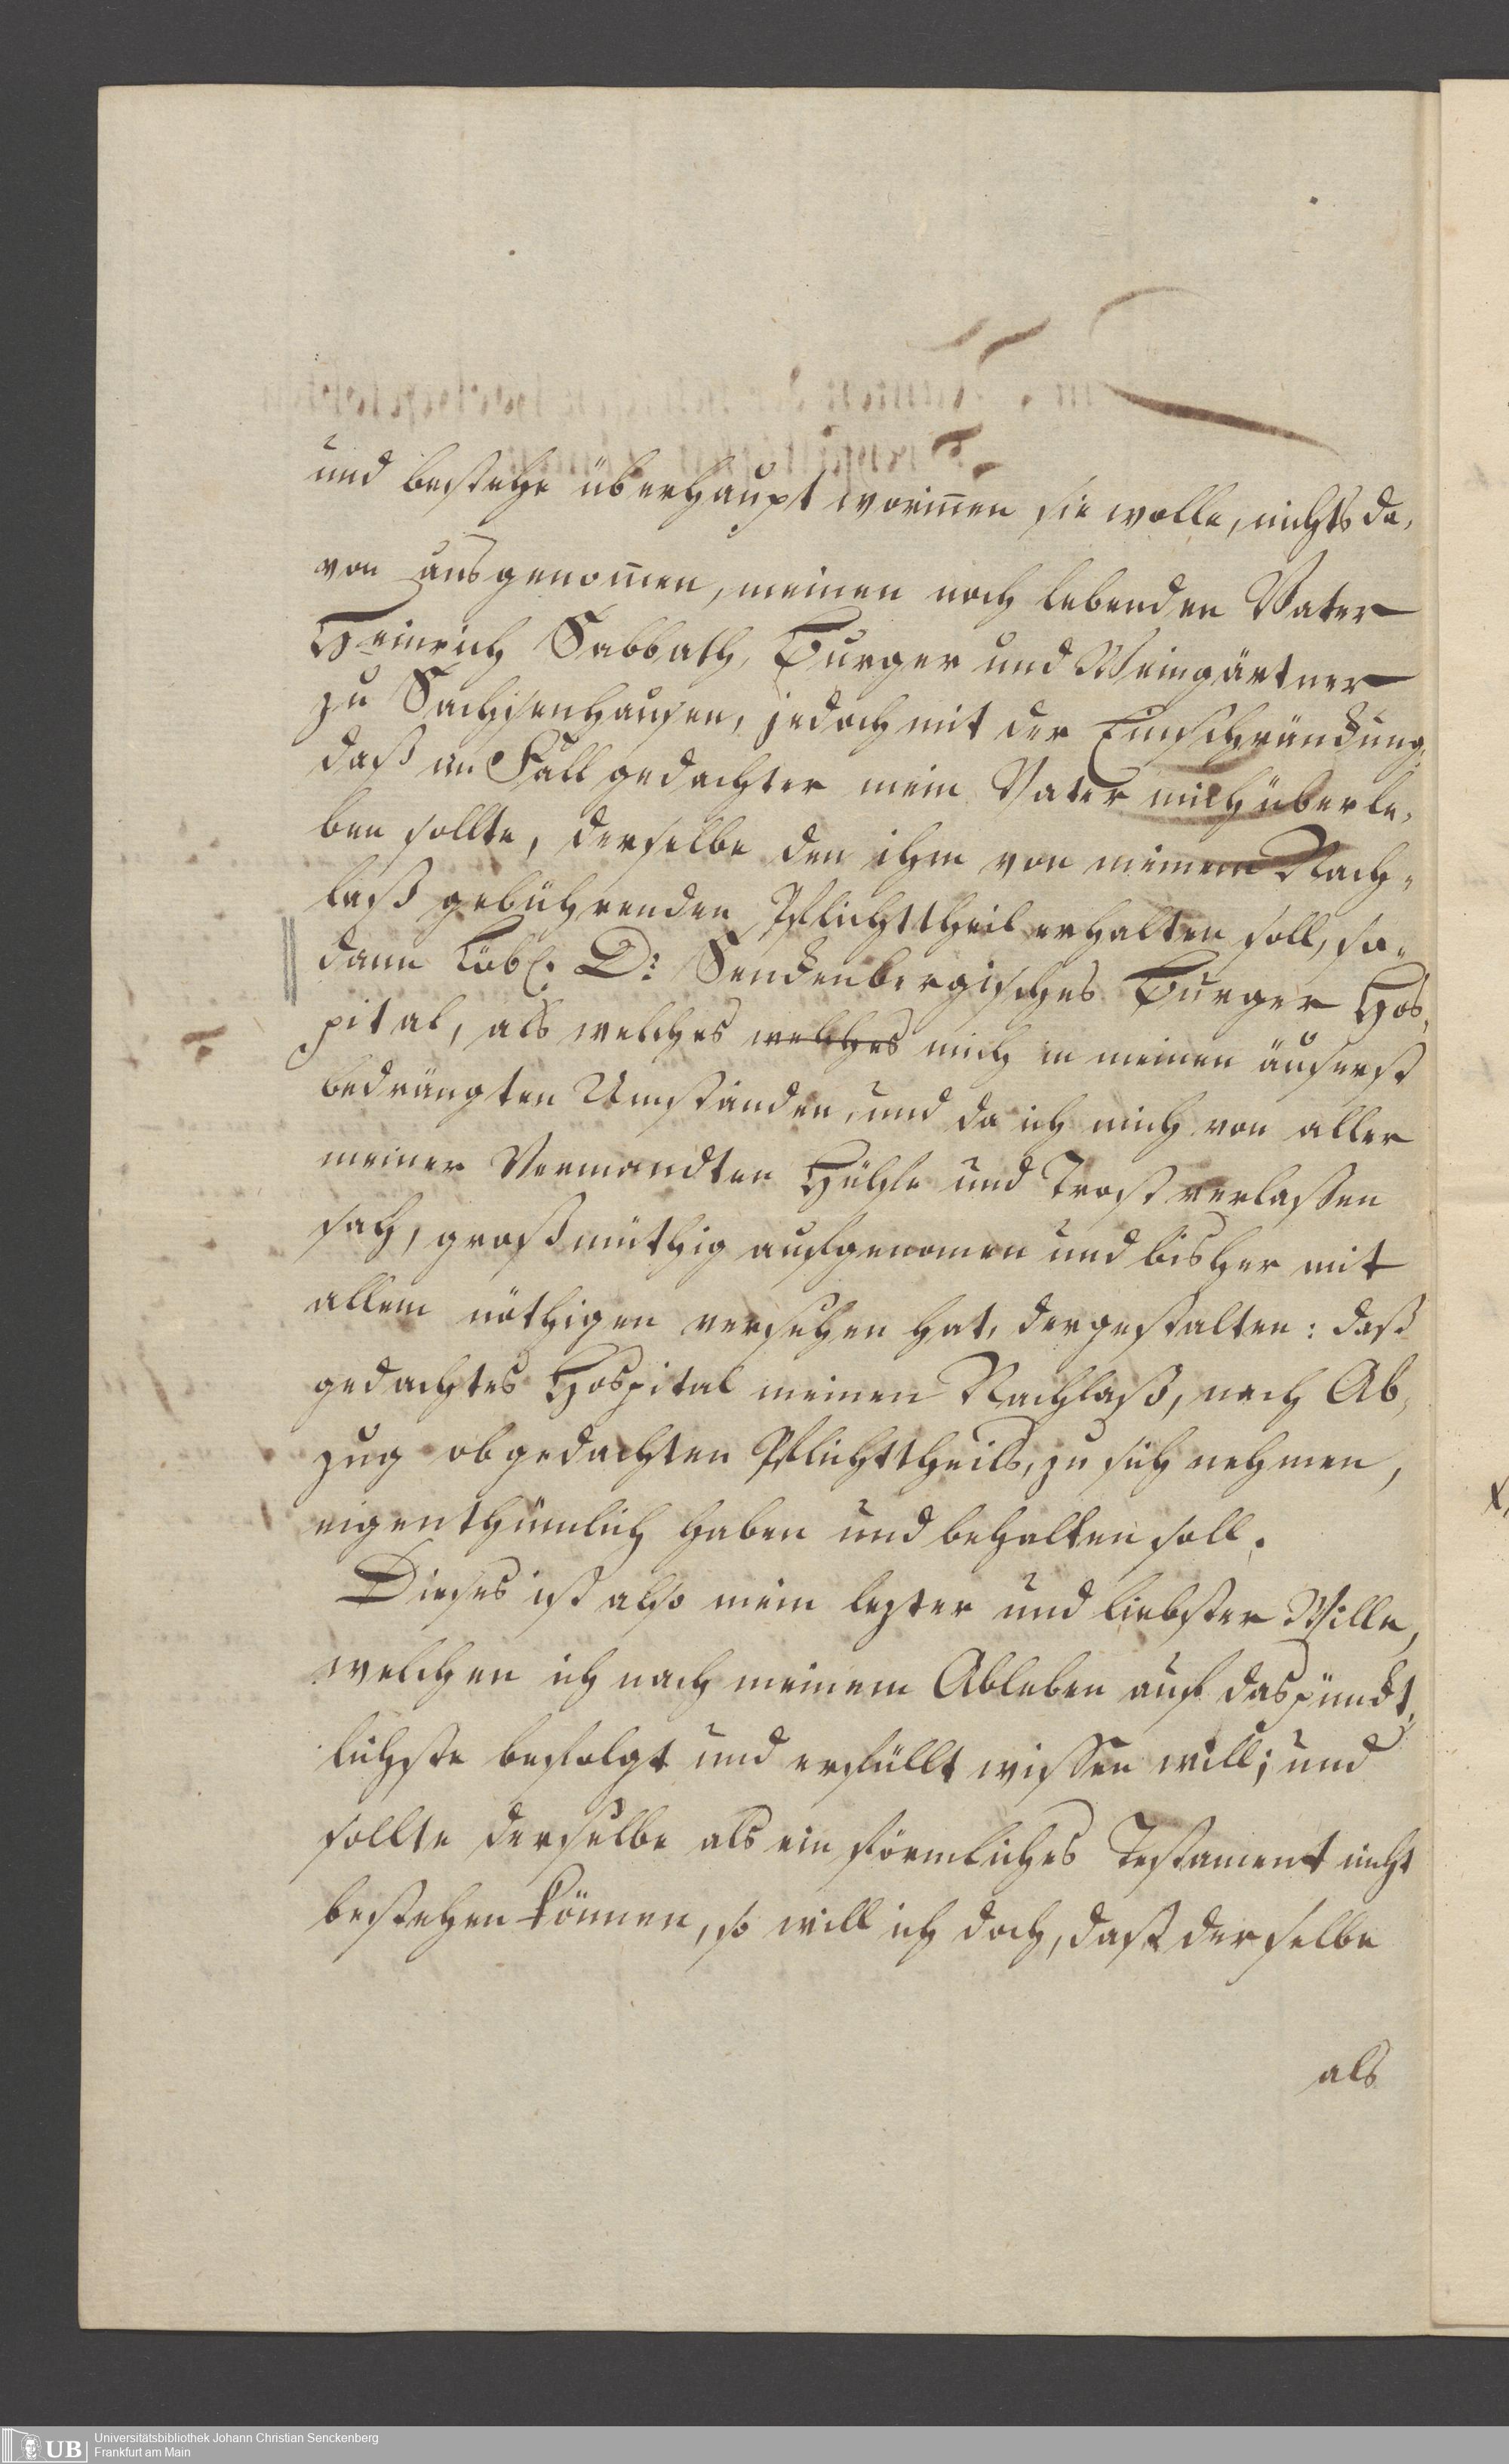 und bestehe überhaupt worin̄en sie wolle, nichts da-
von ausgenom̄en, meinen noch lebenden Vater
Heinrich Sabbath, Burger und Weingärtner
zu Sachsenhausen, jedoch mit der Einschränckung,
daß im Fall gedachter mein Vater mich überle-
ben sollte, derselbe den ihm von meinem Nach-
laß gebührenden Pflichttheil erhalten soll, so-
dann Löbl. Dr: Senckenbergisches Burger Hos-
pital, als welches welches mich in meinen äuserst
bedrängten Umständen, und da ich mich von aller
meiner Verwandten Hülfe und Trost verlassen
sah, großmüthig aufgenomen und bisher mit
allem nöthigen versehen hat, dergestalten: daß
gedachtes Hospital meinen Nachlaß, nach Ab-
zug obgedachten Pflichttheils, zu sich nehmen,
eigenthümlich haben und behalten soll.
Dieses ist also mein lezter und liebster Wille,
welchen ich nach meinem Ableben auf das pünckt-
lichste befolgt und erfüllt wissen will; und
sollte derselbe als ein förmliches Testament nicht
bestehen können, so will ich doch, daß derselbe
als
UB
Universitätsbibliothek Johann Christian Senckenberg
Frankfurt am Main